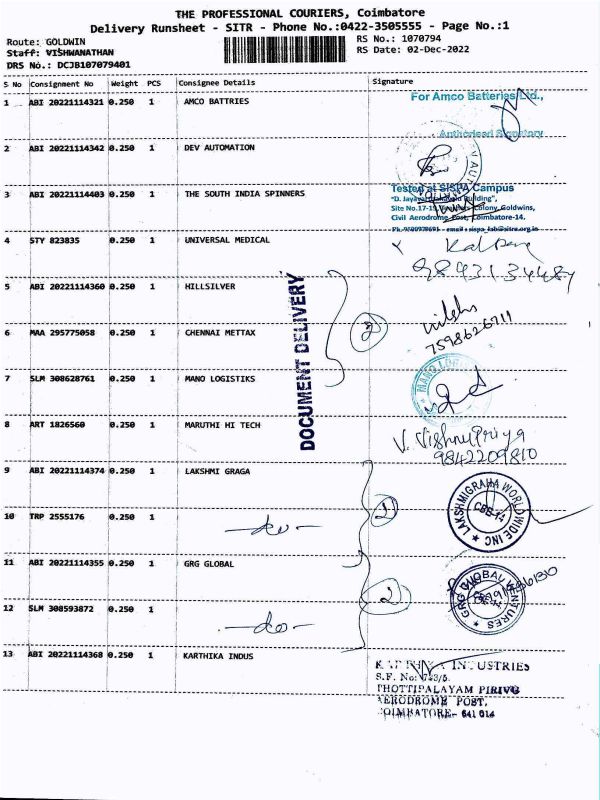 THE PROFESSIONAL COURIERS, Coimbatore
Delivery Runsheet - SITR - Phone No.:0422-3505555 - Page No.:1
Route: GOLDWIN
RS No.: 1070794
Staff: VISHWANATHAN
RS Date: 02-Dec-2022
DRS No.: DCJB107079401
S No Consignment No Weight PCS Consignee Details Signature
1 ABI 20221114321 0.250 1 AMCO BATTRIES
For Amco Batteries Ltd.,
Authorised Signatory
2 ABI 20221114342 0.250 1 DEV AUTOMATION
3 ABI 20221114403 0.250 1 THE SOUTH INDIA SPINNERS
Tested at SISPA Campus
Building",
Colony, Goldwins,
Civil Aerodrome Post, Coimbatore-14.
4 STY 823835 0.250 1 UNIVERSAL MEDICAL
5 ABI 20221114360 0.250 1 HILLSILVER
DOCUMENT DELIVERY
6 MAA 295775058 0.250 1 CHENNAI METTAX
7598626711
7 SLM 308628761 0.250 1 MANO LOGISTIKS
8 ART 1826560 0.250 1 MARUTHI HI TECH
V. Vishnu Priya
9842209810
9 ABI 20221114374 0.250 1 LAKSHMI GRAGA
LAKSHMIGRAHA WORLDWIDE INC
CBE-14
10 TRP 2555176 0.250 1
-do-
2
11 ABI 20221114355 0.250 1 GRG GLOBAL
GRG GLOBAL VENTURES
2
12 SLM 308593872 0.250 1
-do-
13 ABI 20221114368 0.250 1 KARTHIKA INDUS
S.F. No:
THOTTIPALAYAM PIRIVU
AERODROME POST,
COIMBATORE- 641 014